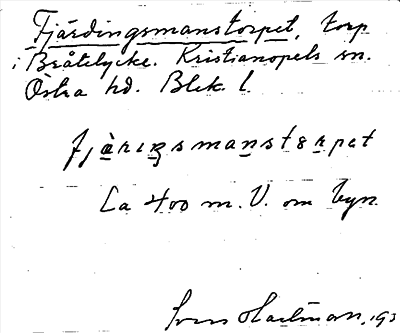 Fjärdingsmanstorpet, torp
i Bråtelycke. Kristianopels sn.
Östra hd. Blek. l.
fjäriŋsmanstɵrpet
Ca 400 m. V. om byn.
Sven Hartman, 193